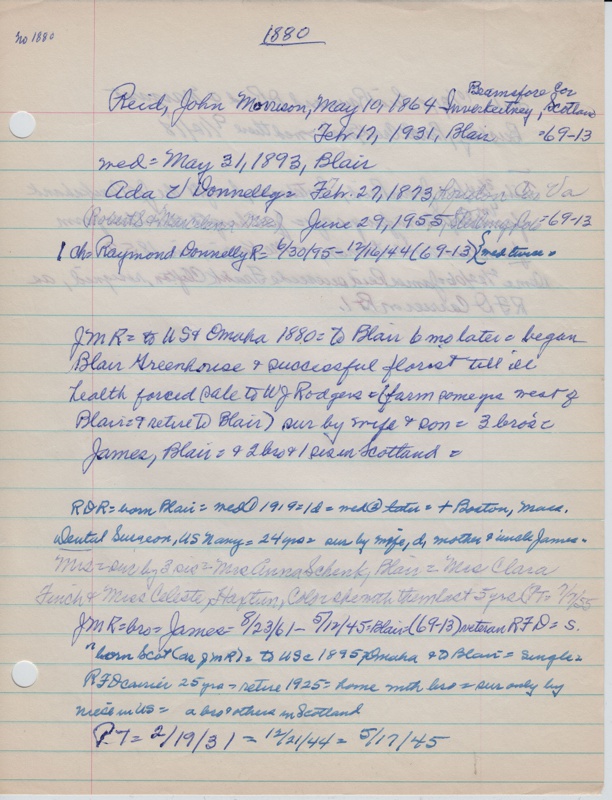 no 1880
1880
Reid, John Morrison, May 10, 1864 Inverkeitney, Scotland
Feb 17, 1931, Blair =69-13
med = May, 31, 1893, Blair
Ada V Donnelly = Feb. 27, 1873, Va
June 29, 1955, =69-13
1 ch= Raymond Donnelly R= 6/30/95 - 12/16/44 (69-13) {med twice =
JMR = to US & Omaha 1880 = to Blair 6 mo later = began
Blair Greenhouse & successful florist till ill
health forced sale to WJ Rodgers = (farm some yrs west of
Blair = & retire to Blair) sur by wife & son = 3 bros =
James, Blair = & 2 bro & 1 sis in Scotland =
RDR = born Blair = med ① 1919 = 1d = med ② later = + Boston, Mass.
Dental Surgeon, US Navy = 24 yrs = sur by wife, d, mother & uncle James =
Mrs = sur by 3 sis = Mrs Anna Schenk, Blair = Mrs Clara
Finch & Miss Celeste, Haxtun, Colo = she with them last 5 yrs (P.T. 7/7/55
JMR = bro = James = 8/23/61 - 5/12/45 = Blair (69-13) veteran RFD = s.
" born Scot (as JMR) = to US c 1895, Omaha & to Blair = single =
RFD carrier 25 yrs = retire 1925 = home with bro = sur only by
niece in US = a bro & others in Scotland
P.T = 2/19/31 = 12/21/44 = 5/17/45